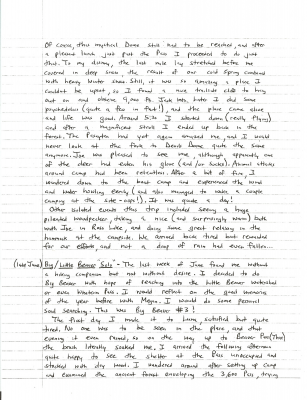 Of course, this mystical Dome still had to be reached, and after
a pleasant lunch just past the Pass I proceeded to do just
that. To my dismay, the last mile lay stretched before me
covered in deep snow, the result of our cold Spring combined
with heavy Winter snow. Still, it was so amazing a place I
couldn't be upset, so I found a nice trailside slab to hang
out on and observe 9,000 ft. Jack later, later I did some
(quite a few in fact!), and the place came alive
and life was good. Around 5:30 I started down (really flying)
and after a magnificent stroll I ended up back in the
forest. The Range had yet again amazed me, and I would
never look at the Park to Devils Dome quite the same
anymore. Joe was pleased to see me, although apparently one
of the deer had eaten his glove (and/or socks). Animal antics
around camp had been relentless. After a bit of fire, I
wandered down to the boat camp and experienced the wind
and water howling (who also managed to wake a couple
camping at the site - oops!). It was quite a day!
Other isolated events this trip included seeing a huge
pileated woodpecker, taking a not surprisingly warm bath
with Joe in Ross Lake, and doing some great relaxing in the
hammock at the campsite. We arrived back tired but rewarded
for our efforts, and not a drop of rain had ever fallen...
(late June) Big/Little Beaver "Solo" - The last week of June found me without
a hiking companion but not without desire. I decided to do
Big Beaver with hope of reaching into the Little Beaver watershed
or even Whatcom Pass. I would reflect on the good memories
of the year before with Megan. I would do some personal
soul searching. This was Big Beaver #3!
The first day I made it to Luna, satisfied but quite
tired. No one was to be seen in the place, and that
evening it even rained, so on the way up to Beaver Pass (Thur)
the brush literally soaked me. I arrived the following afternoon
quite happy to see the shelter at the Pass unoccupied and
stocked with dry wood. I wandered around after setting up camp
and examined the ancient forest enveloping the 3,600 Pass, trying